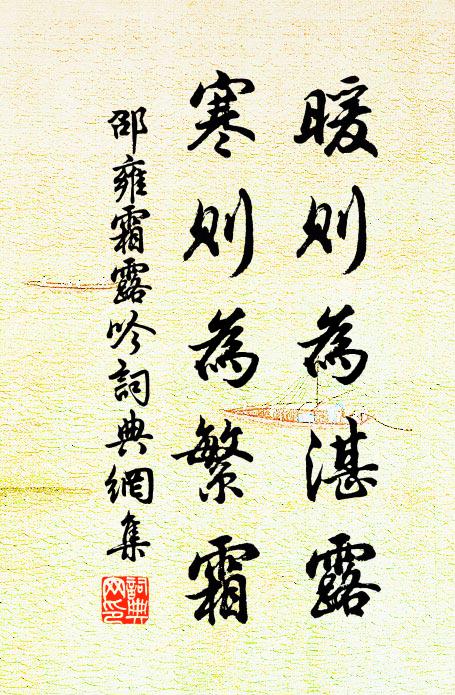 暖則為湛露
寒則為繁霜
邵雍霜露吟詞典網集
詞典
网印